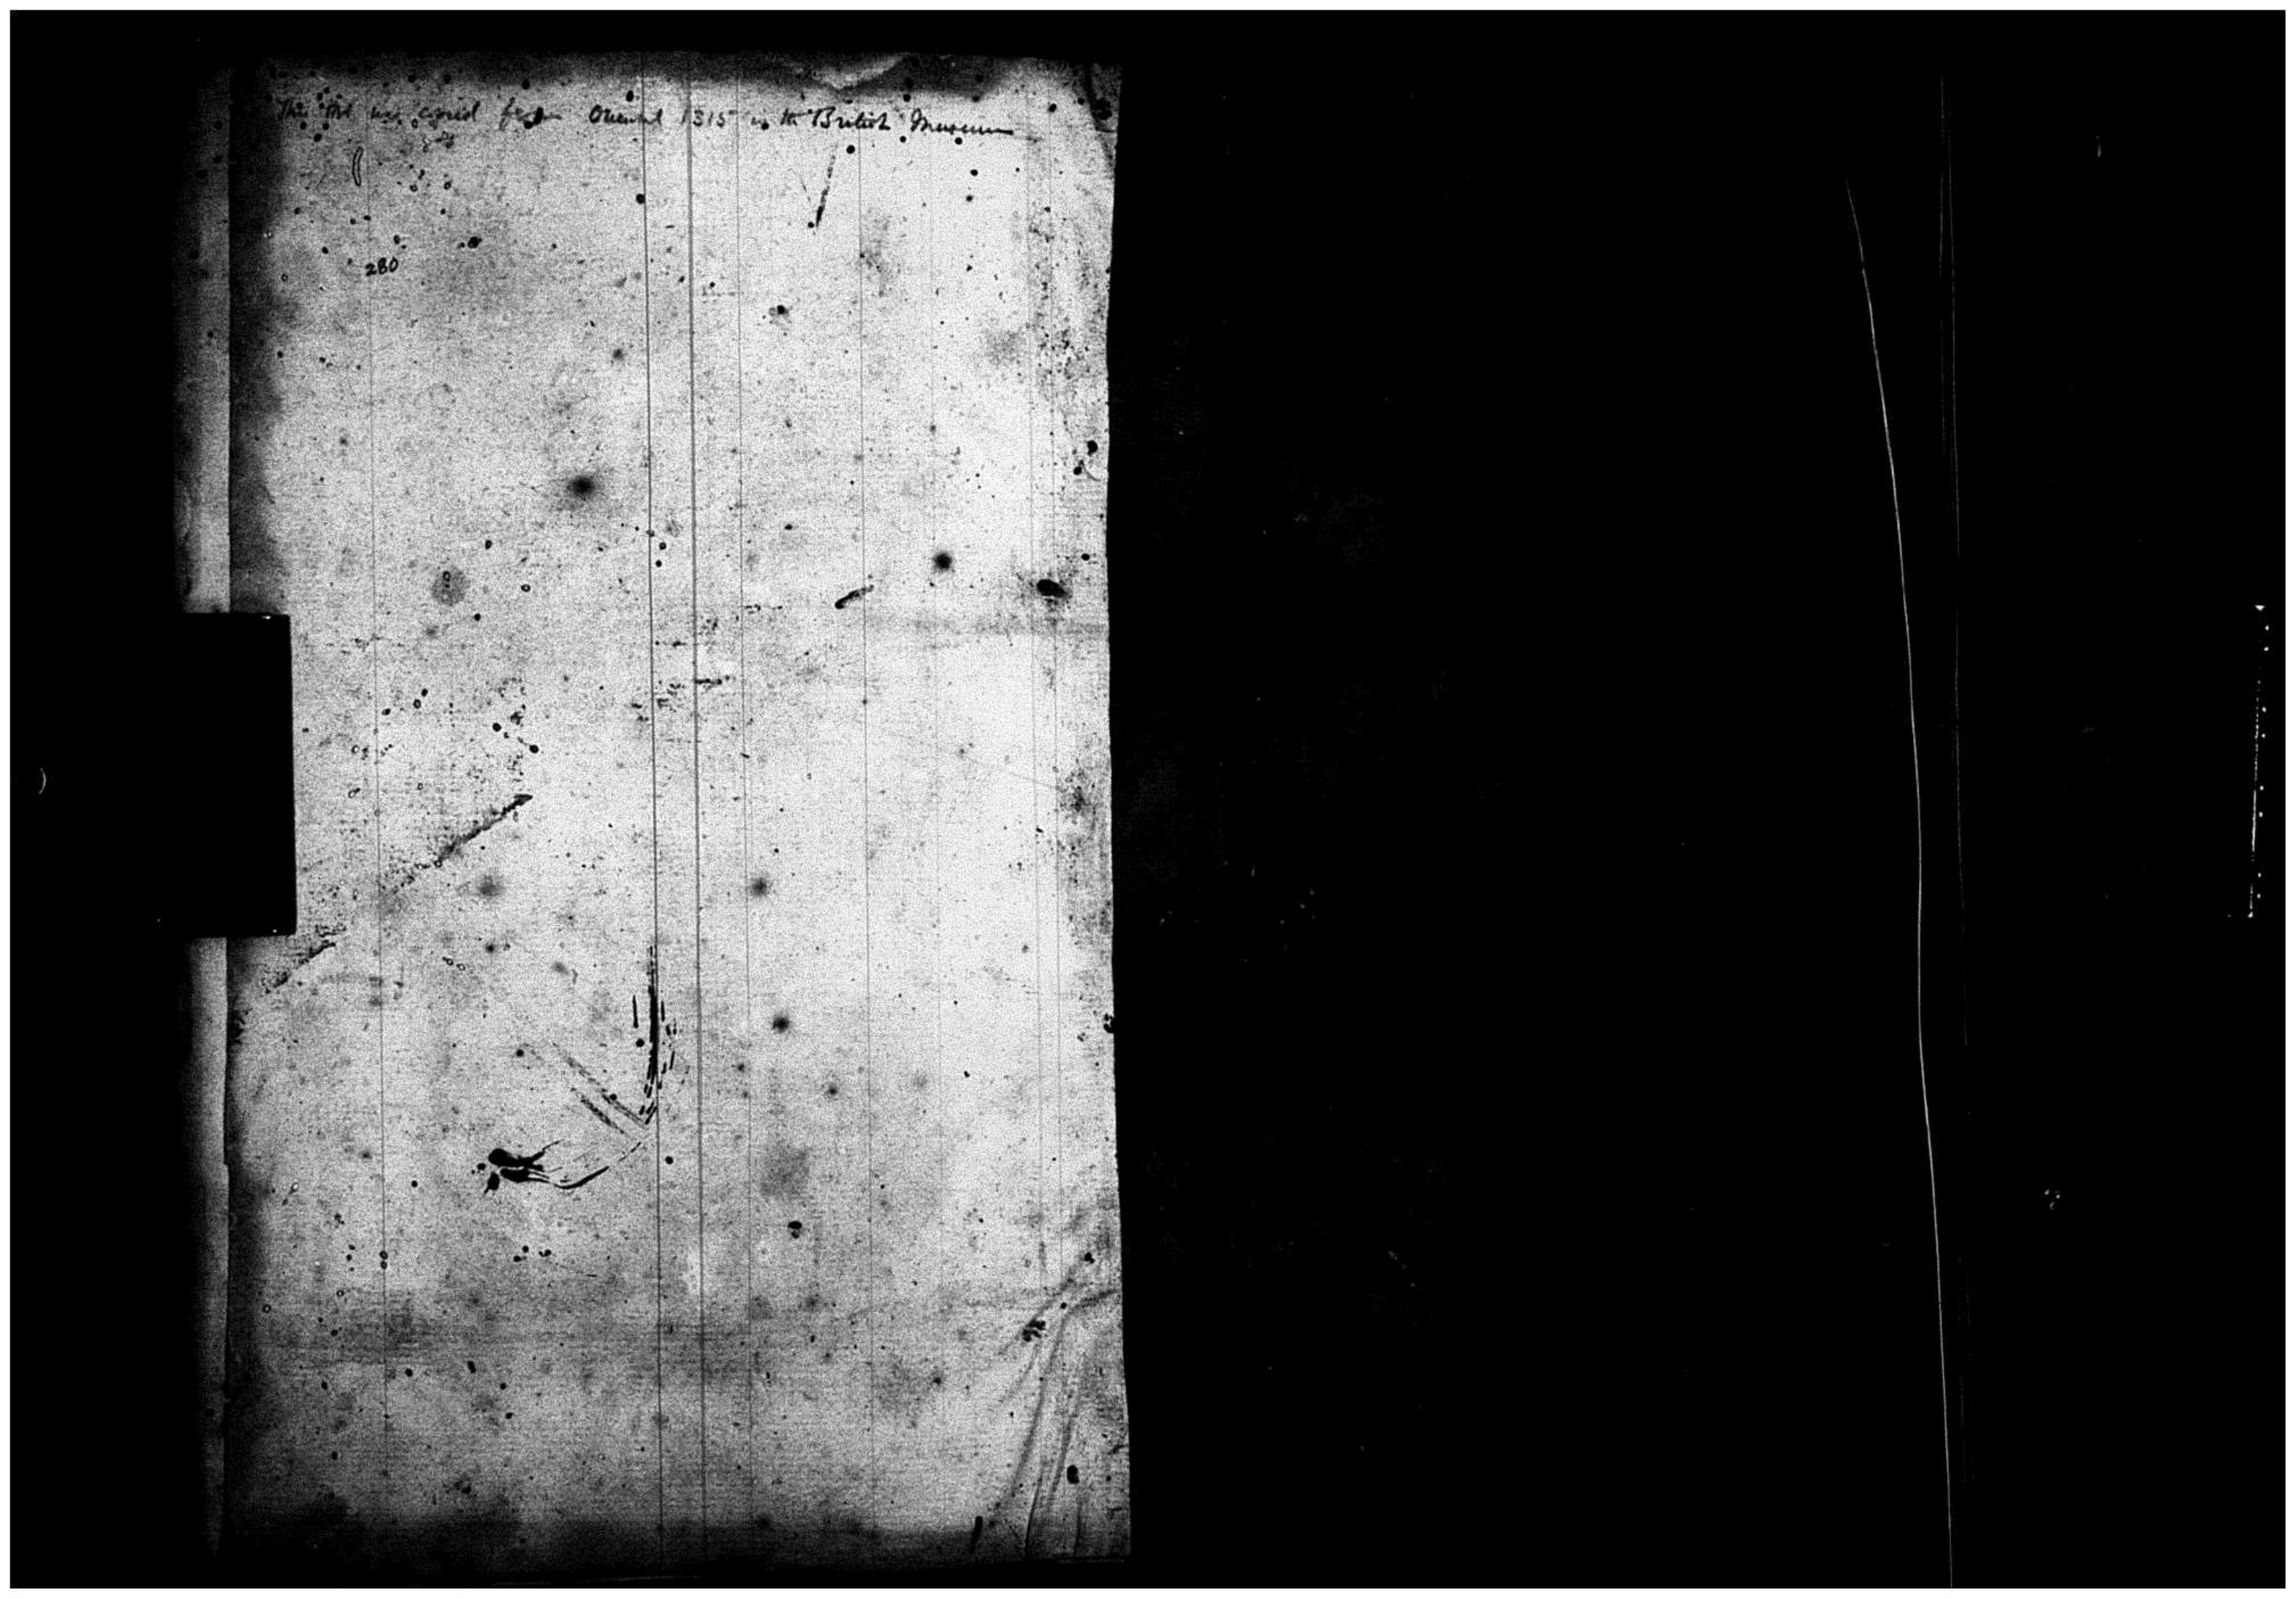 This Ms was copied from Oriental 1315 in the British Museum
280